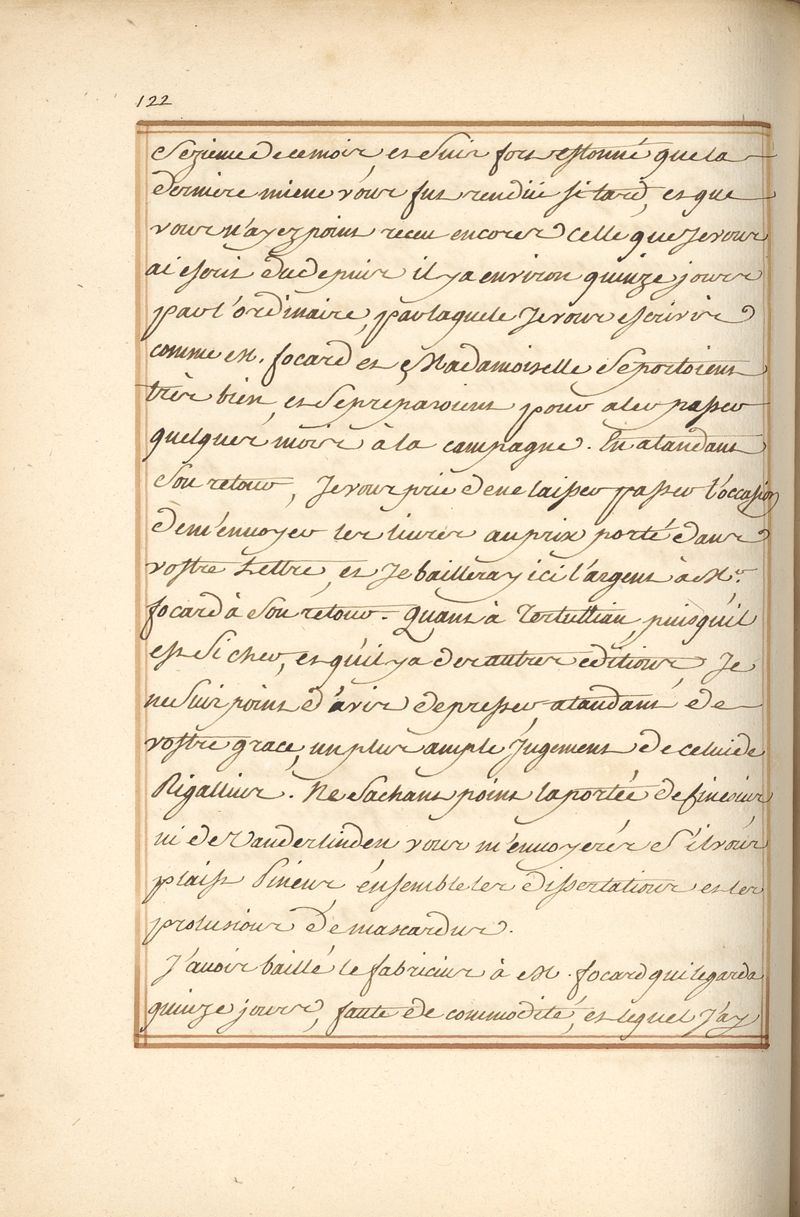 122
Sezieme de ce mois, et suis fort estonné que la
derniere miene vous fut rendüe si tard, et que
vous n'ayez point receu encores celle que Je vous
ai escrit du depuis il y a environ quinze jours
par l'ordinaire, par laquele Je vous escrivis
comme M. focard et Madamoiselle se portoient
très bien, et se preparoient pour aler passer
quelques mois à la campagne. En atandant
son retour, Je vous prie de ne laisser passer l'occasion
de m'envoyer les livres au prix porté dans
vostre Lettre, et Je bailleray ici l'argent à Mr.
focard à son retour. Quant à Tertullian, puisqu'il
est si cher, et qu'il y a des autres editions, Je
ne suis point d'avis de presser, atandant de
vostre grace, un plus ample Jugement de celui de
Rigaltius. Ne sachant point la portée de
ni de Vanderlinden vous m'envoyerés s'il vous
plaist Pineus ensemble les dissertations et les
prolusions de mascardus.
J'avois baillé le fabricius à M. focard qui le garda
quinze jours, faute de commodité, et lequel J'ay